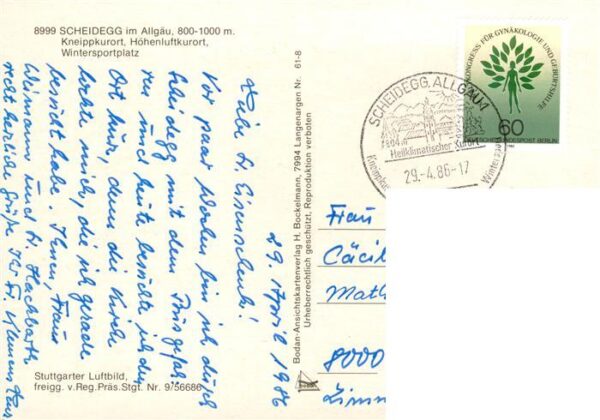 8999 SCHEIDEGG im Allgäu, 800-1000 m.
Kneippkurort, Höhenluftkurort,
Wintersportplatz
29. April 1986
Vor paar Wochen bin ich durch
Scheidegg mit dem Bus gefah-
ren und heute besuchte ich den
Ort kurz, denn die Kirche
lockte mich, die ich gerade
besucht habe. Ihnen, Frau
und Fr.
recht herzliche Grüße Ihr Fr.
Stuttgarter Luftbild,
freigg. v. Reg. Präs. Stgt. Nr. 9/56686
Bodan-Ansichtskartenverlag H. Bockelmann, 7994 Langenargen Nr. 61-8
Urheberrechtlich geschützt, Reproduktion verboten
KONGRESS FÜR GYNÄKOLOGIE UND GEBURTSHILFE
60
DEUTSCHE BUNDESPOST BERLIN
SCHEIDEGG, ALLGÄU 1
804 m
Heilklimatischer Kurort
29.-4.86-17
Frau
Cäcil
Math
8000